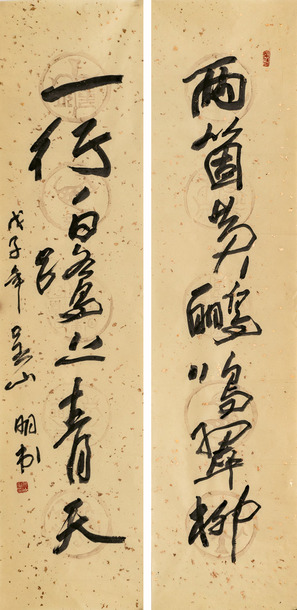 兩箇黄鸝鳴翠柳
一行白鷺上青天
戊子年吴山明书